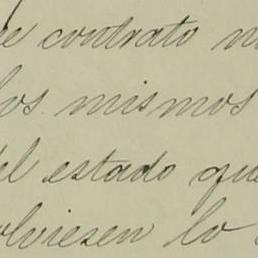 e contrato n
los mismos
del estado que
olviesen lo